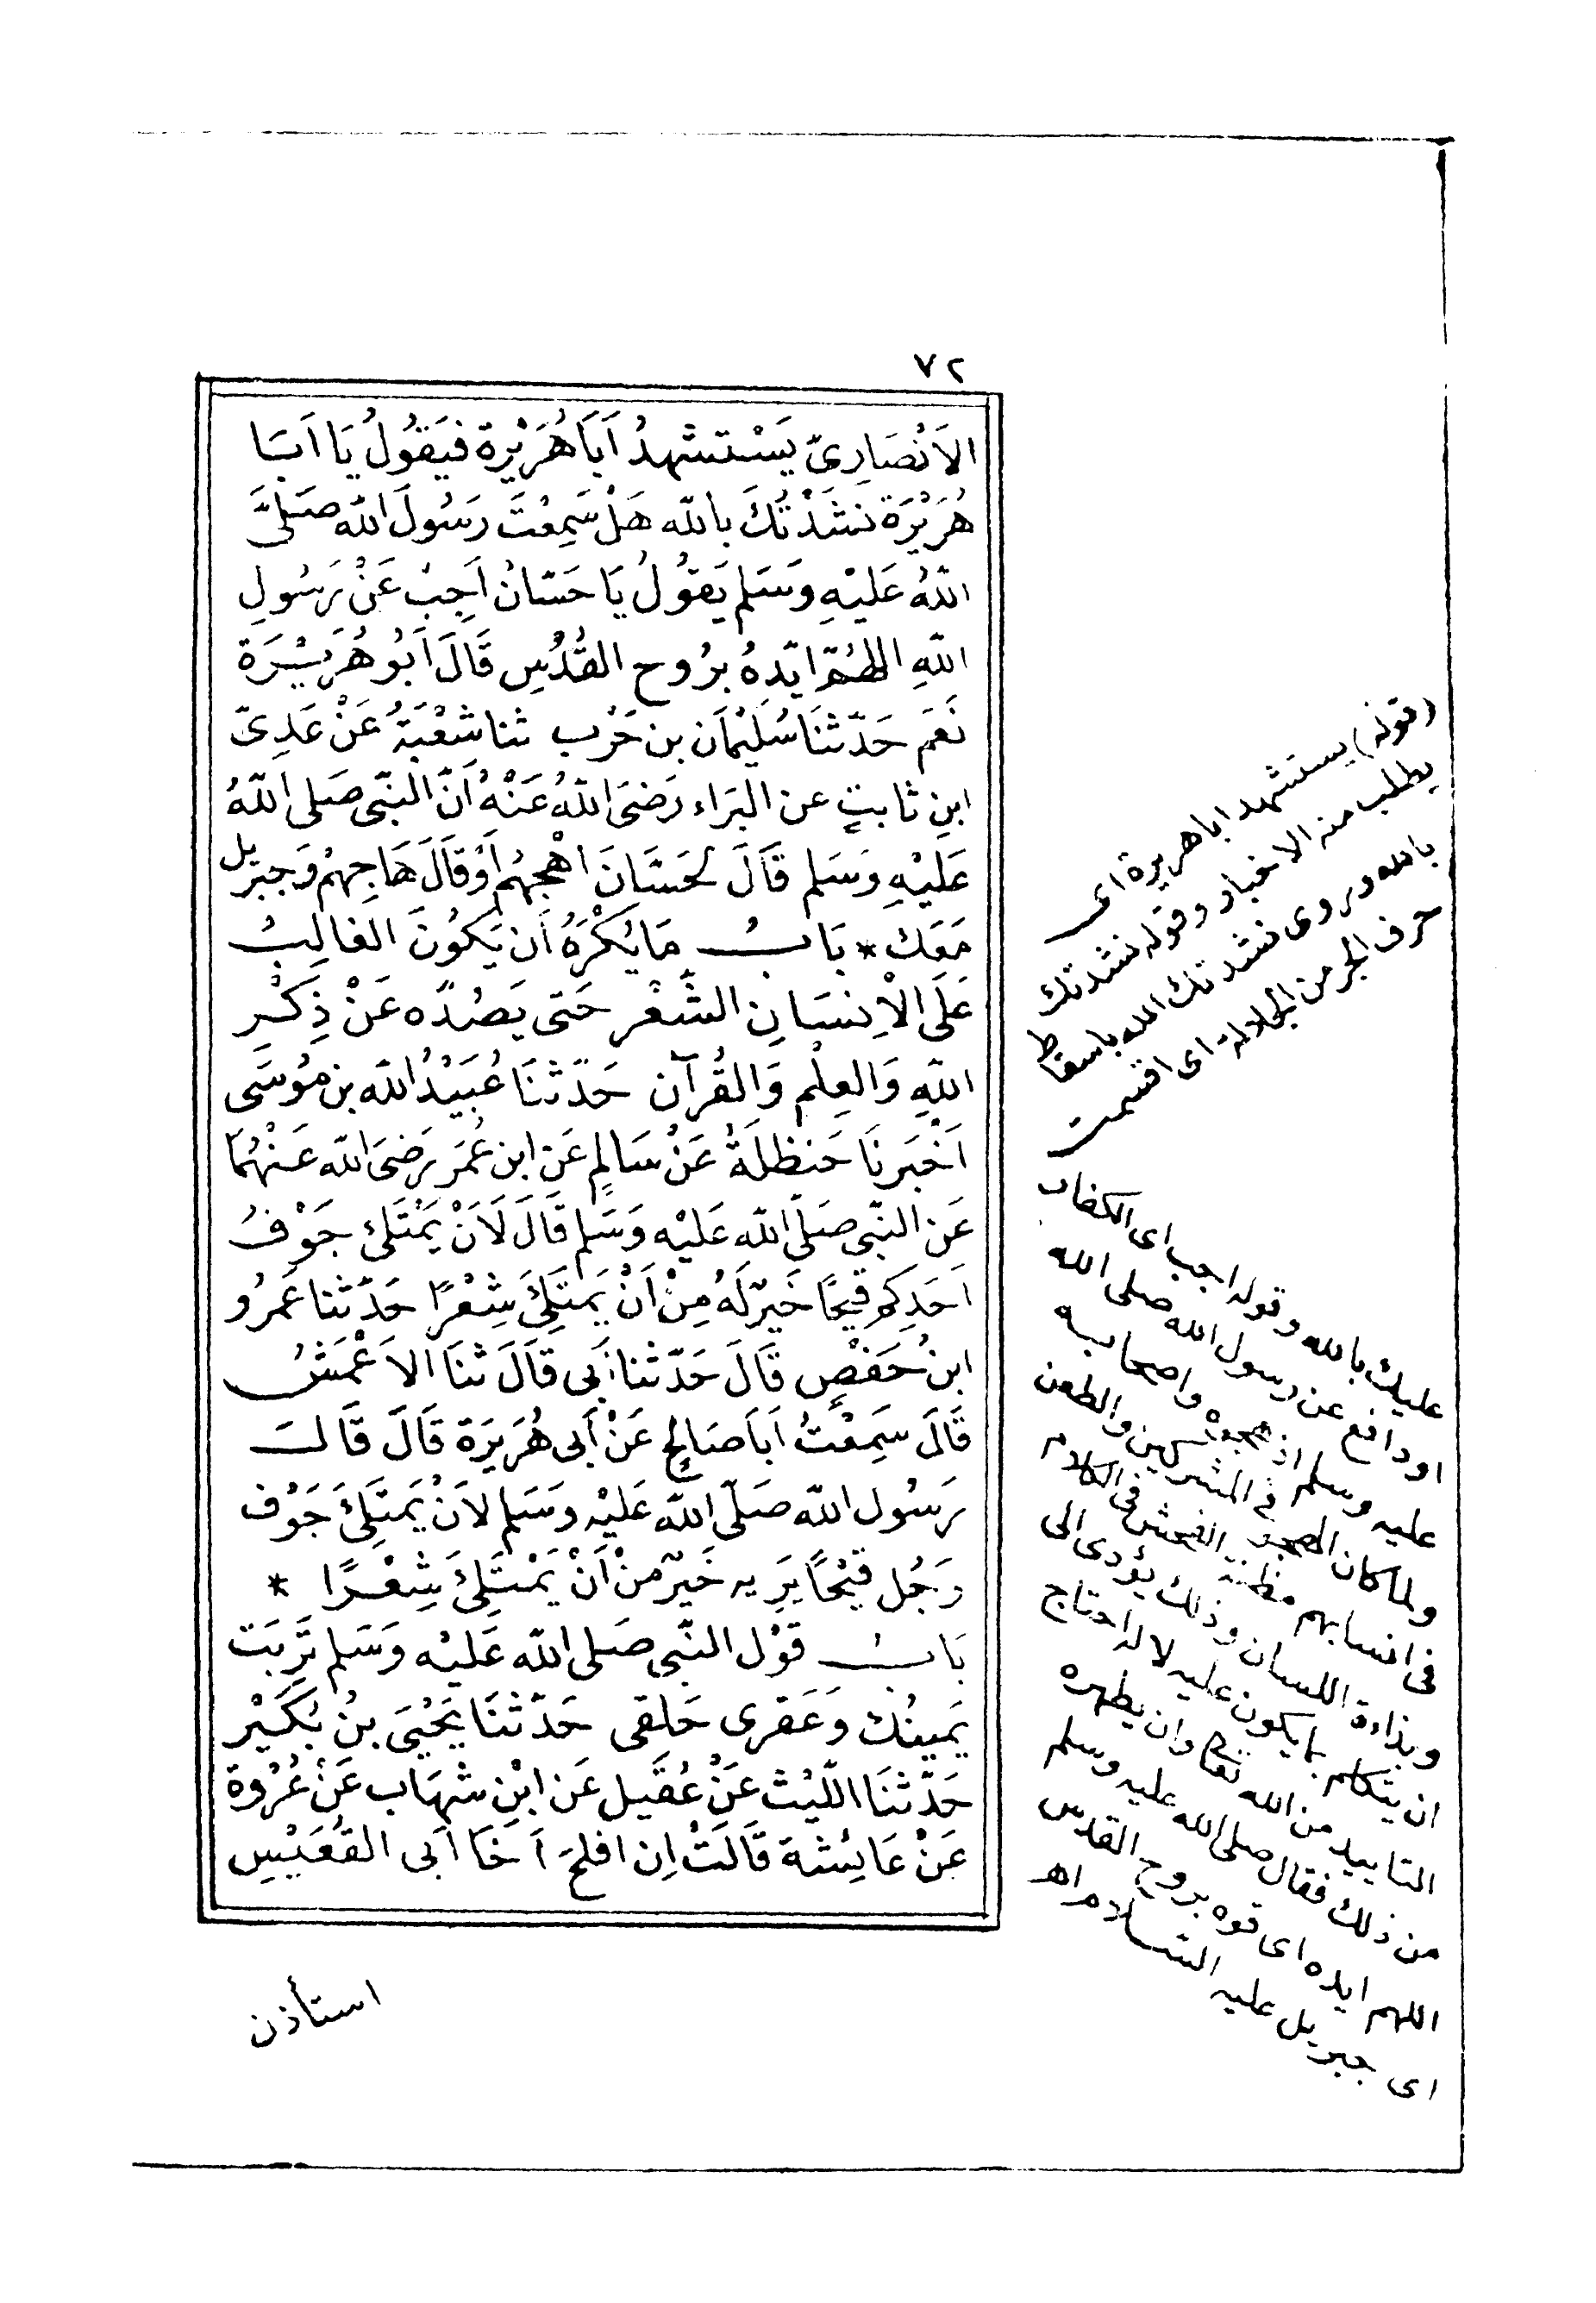 ٧٢
الاَنْصَارِىّ يَسْتَشهِدُ اَبَا هُرَيْرة فيَقُولُ يَا اَبَا
هُرَيْرَة نشَدْتُكَ بالله هَلْ سَمِعْتَ رَسُولَ الله صَلَّى
اللهُ عَليْهِ وَسَلم يَقولُ يَا حَسّانُ اَجِبْ عَنْ رَسُولِ
اللهِ اللهُمّ ايّدِهُ برُوح القُدُسِ قَالَ اَبُو هُرَيْرَة
نَعَم حَدّثنَا سُلَيْمَان بن حَرْب ثنا شعْبَةُ عَنْ عَدِىّ
ابنِ ثابتٍ عن البَراء رَضىَ اللهُ عَنْهُ اَنّ النبّى صَلى اللهُ
عَليْهِ وَسَلم قَالَ لحَسَّانَ اهْجُهُم اَوْ قَالَ هَاجِهُمْ وَجبْريل
مَعَك * بَابُ مَا يُكْرَهُ اَن يَكُونَ الغالِبُ
عَلَى الْاِنسَانِ الشّعْر حَتى يَصُدّه عَنْ ذِكْرِ
اللهِ وَالعِلْم وَالقُرآن حَدّثنَا عُبَيْدُ الله بن مُوسَى
اَخْبَرنَا حَنظلَةُ عَنْ سَالمٍ عَن ابن عُمَر رَضىَ الله عَنْهُمَا
عَن النبّى صَلّى الله عَليْه وَسَلم قَالَ لَاَنْ يَمْتَلِئ جَوْفُ
اَحَدِكم قَيحًا خَيرٌ لَهُ مِنْ اَنْ يَمتَلِئَ شِعْرًا حَدّثنا عَمرُو
ابنُ حَفصٍ قَالَ حَدّثنا اَبى قَالَ ثنَا الاَعْمَشُ
قَالَ سَمِعْتُ اَبَا صَالحٍ عَنْ اَبى هُرَيرَة قَالَ قَالَ
رَسُول الله صَلّى الله عَليْه وَسَلم لاَنْ يَمتَلِئَ جَوْف
رَجُل قَيْحًا يَرِيه خَيرٌ مِنْ اَنْ يَمْتَلِئَ شِعْرًا *
بَابُ قوْل النبّى صَلى الله عَليْه وَسَلم تَرِبَت
يَمينُك وَعَقرى حَلقى حَدّثنَا يَحْيَى بنُ بُكَيْر
حَدّثنَا اللّيْث عَنْ عُقَيل عَن ابْنِ شهَاب عَنْ عُرْوة
عَنْ عَائِشة قَالَتْ اِن افلحَ اَخَا اَبى القُعَيْسِ
استأذن
(قوله) يستشهد ابا هريرة اى
يطلب منه الاخبار وقوله نشدتك
بالله وروى نشدتك الله باسقاط
حرف الجر من الجلالة اى اقسمت
عليك بالله وقوله اجب اى الكفار
او دافع عن رسول الله صلى الله
عليه وسلم اذ هجوه واصحابه
ولما كان الهجو فى المشركين والطعن
فى انسابهم مظنة الفحش فى الكلام
وبذاءة اللسان وذلك يؤدى الى
ان يتكلم بما يكون عليه لا له احتاج
التاييد من الله تعالى وان يطهره
من ذلك فقال صلى الله عليه وسلم
اللهم ايده اى قوه بروح القدس
اى جبريل عليه السلام اهـ